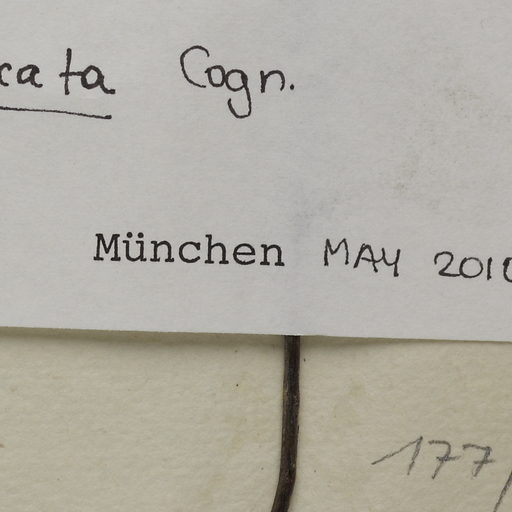 cata Cogn.
München MAY 2010
177/